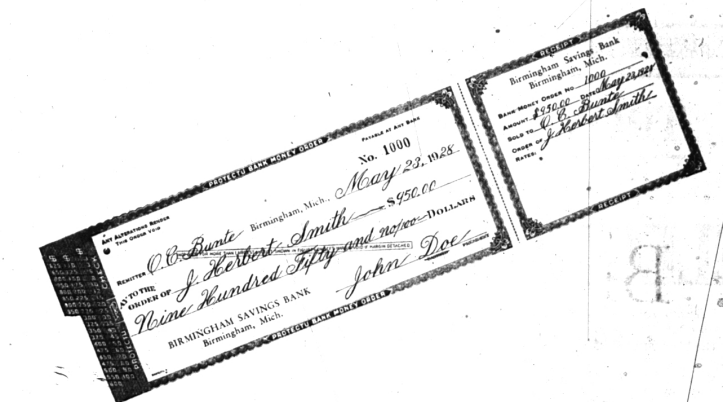 PROTECTU BANK MONEY ORDER
PAYABLE AT ANY BANK
No. 1000
ANY ALTERATIONS RENDER
THIS ORDER VOID
Birmingham, Mich., May 23, 1928
REMITTER O.E. Bunte
TO THE
ORDER OF J Herbert Smith $950.00
Nine Hundred Fifty and no/100 DOLLARS
BIRMINGHAM SAVINGS BANK
Birmingham, Mich.
John Doe
PRESIDENT
PROTECTU BANK MONEY ORDER
RECEIPT
Birmingham Savings Bank
Birmingham, Mich.
BANK MONEY ORDER No. 1000
AMOUNT $950.00 DATE May 23, 1928
SOLD TO O.E. Bunte
ORDER OF J Herbert Smith
RATES:
RECEIPT
B